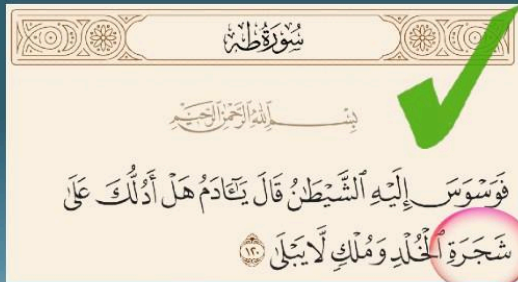 سُورَةُ طه
بِسْمِ ٱللَّهِ ٱلرَّحْمَٰنِ ٱلرَّحِيمِ
فَوَسْوَسَ إِلَيْهِ ٱلشَّيْطَٰنُ قَالَ يَٰٓـَٔادَمُ هَلْ أَدُلُّكَ عَلَىٰ
شَجَرَةِ ٱلْخُلْدِ وَمُلْكٍ لَّا يَبْلَىٰ ١٢٠